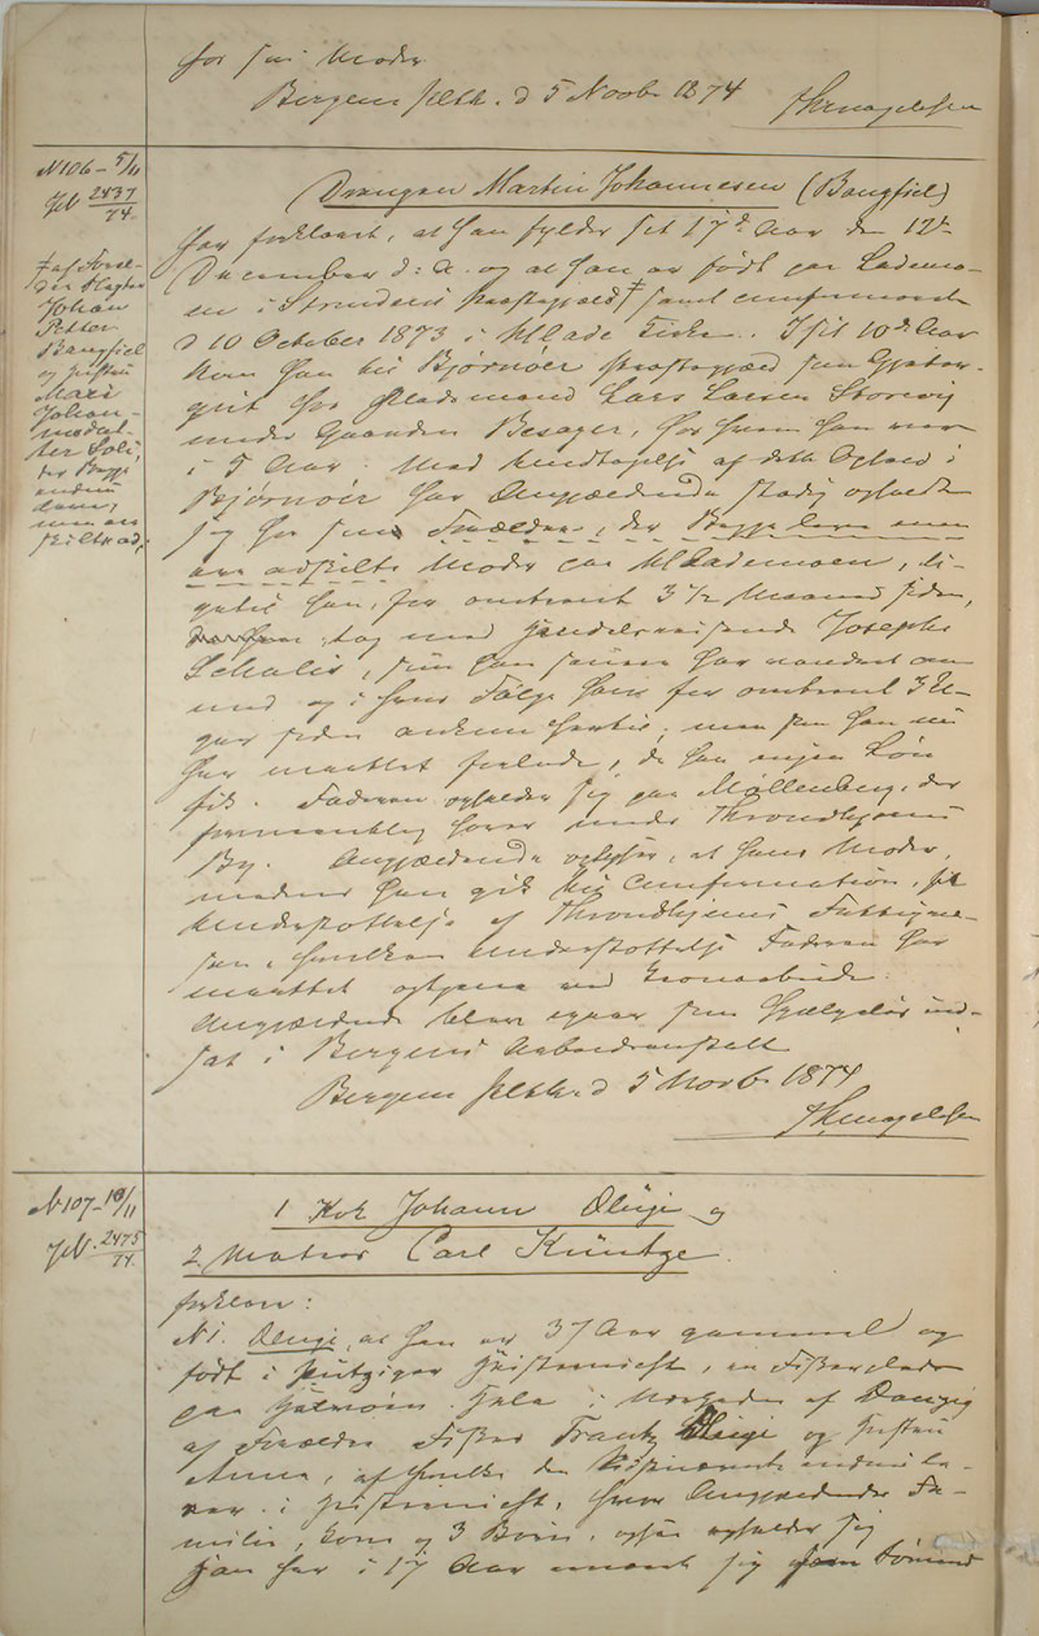 for sin Moder.
Bergens 5 Novbr 1874
N 106 - 5/11
2437/74.
‡ af Foræl-
dre
Johan
Petter
Bangfiel
og Hustru
Mari
Johan-
nesdat-
ter Soli,
der Begge
endnu
leve,
men ere
skilte ad,
Drengen Martin Johannesen (Bangfiel)
har forklaret, at han fylder sit 17de Aar den 12te
December d: A. og at han er født paa Lademo-
en i Strindens Præstegjæld ‡ samt confirmeret
d 10 October 1873 i Hlade Kirke. I sit 10de Aar
kom han til Bjørnöer Præstegjæld som Gjæter-
gut hos Pladsmand Lars Larsen Storvig
under Gaarden Besager, hos hvem han var
i 5 Aar. Med Undtagelse af dette Ophold i
Bjørnöer har Angjældende stadig opholdt
sig hos sine Forældre, der Begge leve men
ere adskilte Moder paa Hlademoen, ti-
gutil han, for omtrent 3 1/2 Maaned siden,
tog med Handelsreisende Josephi
Schulis, som han siden har vandret om
med og i hvis Følge han for omtrent 3 U-
ger siden ankom hertil, men som han nu
har maattet forlade, da han ingen Løn
fik. Faderen opholder sig paa Möllenberg, der
formeentlig hører under Throndhjems
By. Angjældende oplyser, at hans Moder,
medens han gik til Confirmation, fik
Understøttelse af Throndhjems Fattigvæ-
sen, hvilken Understøttelse Faderen har
maattet aftjene ved
Angjældende blev igaar som Hjælpeløs ind-
sat i Bergens Arbeidsanstalt
Bergens d 5 Novbr 1874
N 107 - 10/11
2475/74.
1 Kok Johann Oluji og
2. Matros Carl Küntze.
forklare:
N 1. Oluji, at han er 37 Aar gammel og
født i Putziger Heisternest, en Fiskerplads
paa Halvöen Hela i Nærheden af Danzig
af Forældre Fisker Frantz Oluji og Hustru
Anna, af hvilke den Sidstnævnte endnu le-
ver i Heisternest, hvor Angjældendes Fa-
milie, Kone og 3 Børn, ogsaa opholder sig
Han har i 17 Aar ernæret sig som Sömand